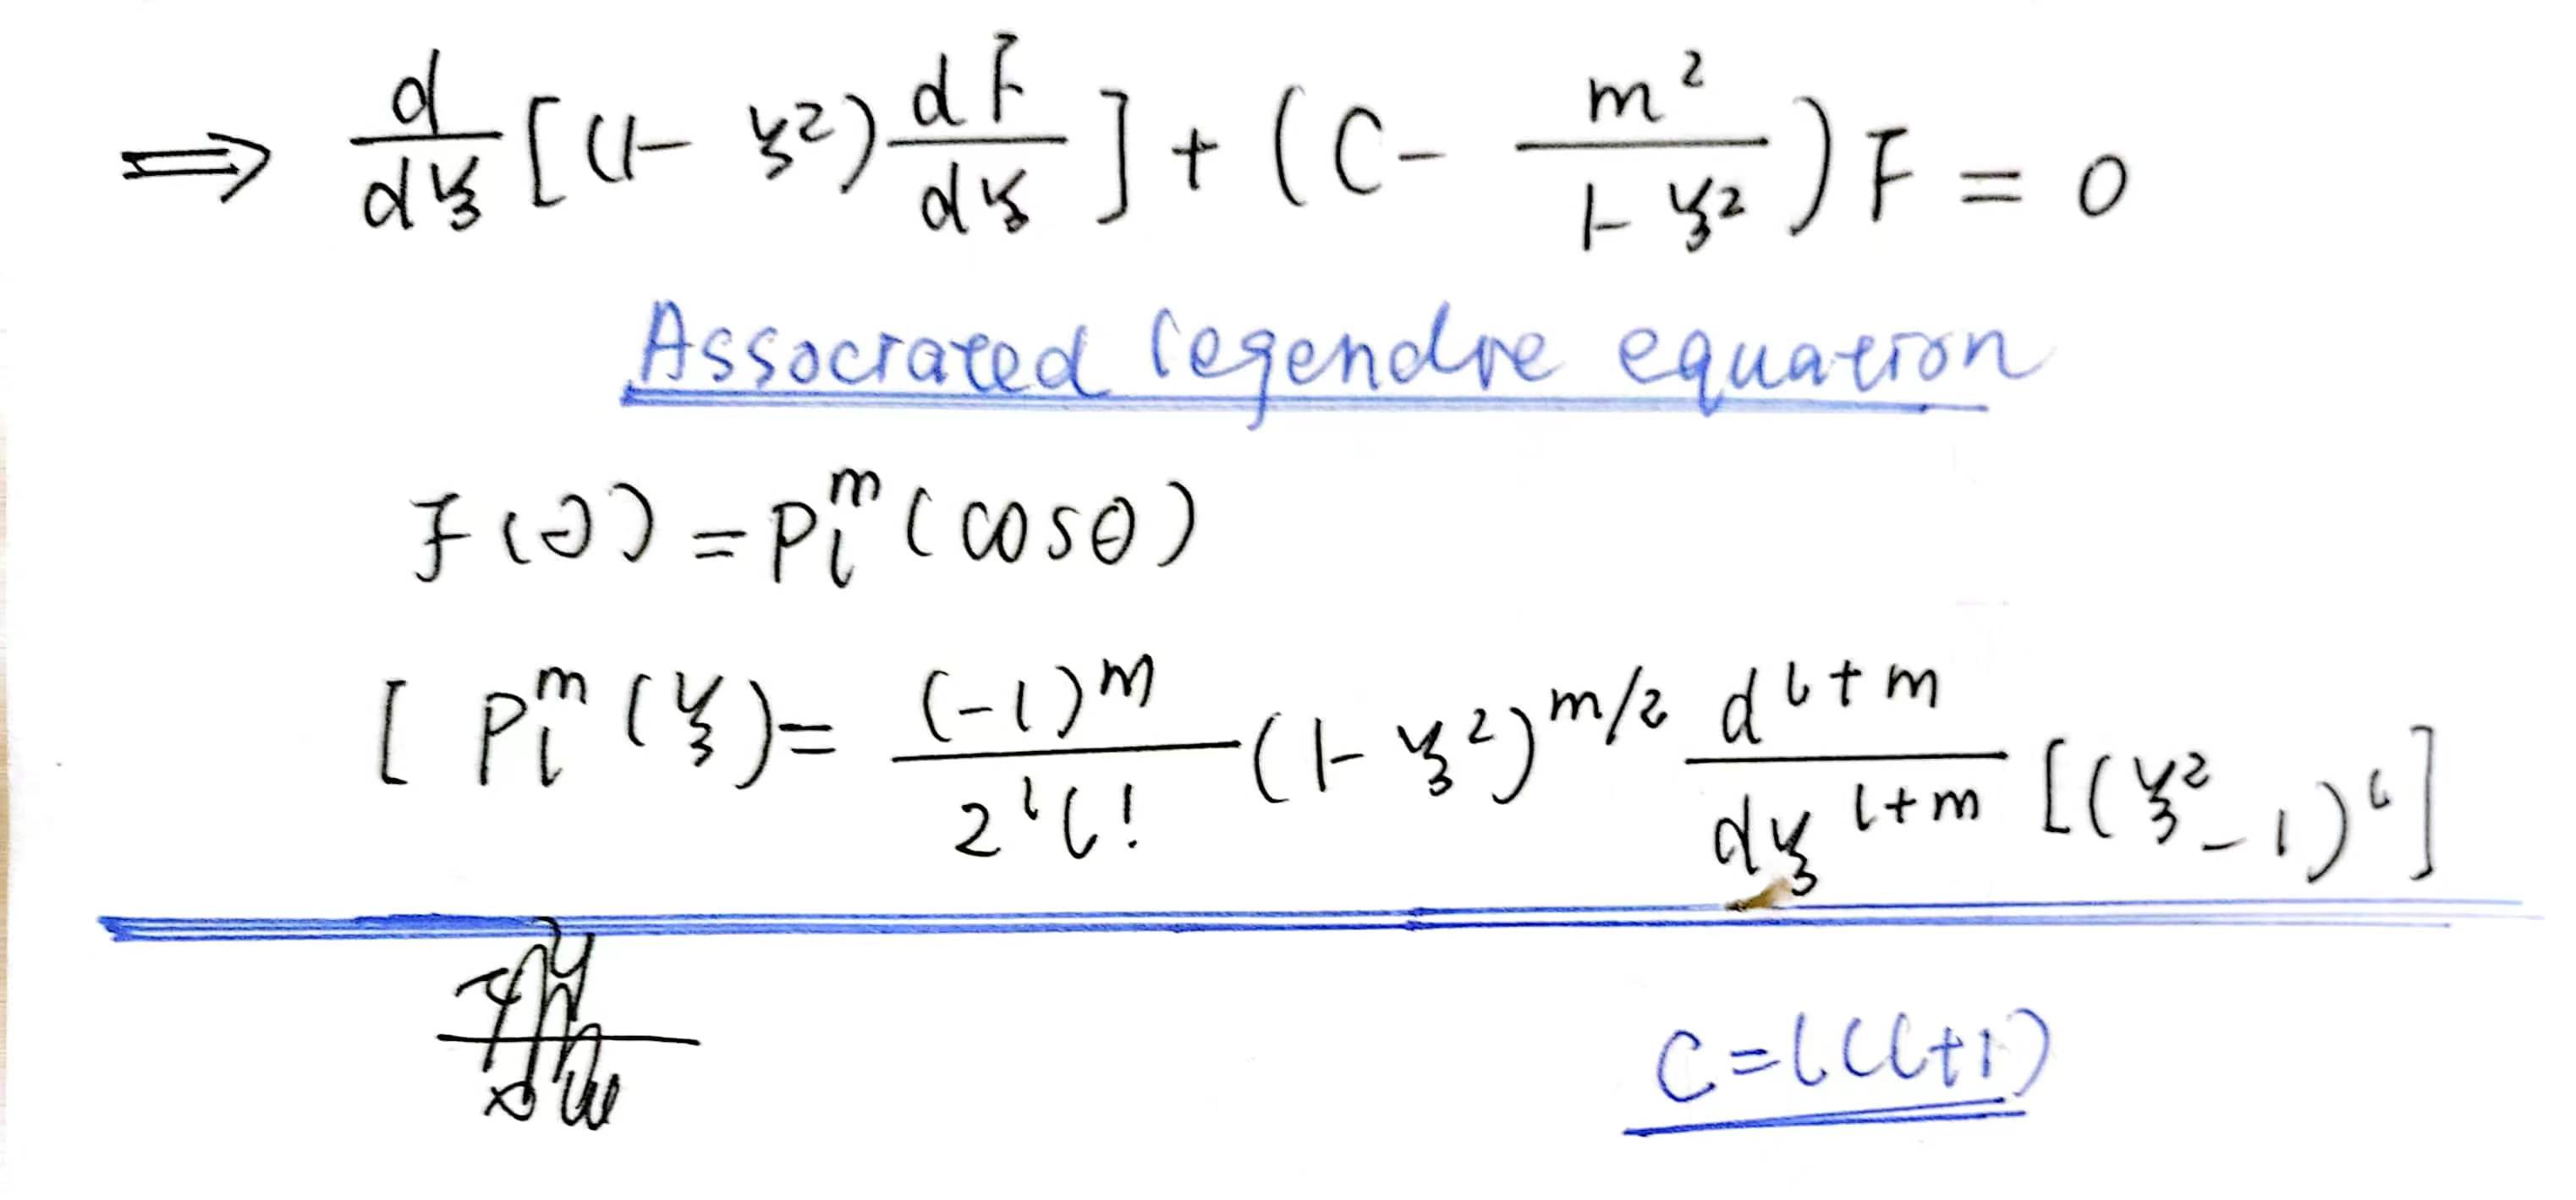 ⟹ d/dξ [(1 - ξ²) dF/dξ] + (C - m²/(1 - ξ²)) F = 0
Associated legendre equation
F(θ) = P_l^m (cosθ)
[ P_l^m (ξ) = (-1)^m/(2^l l!) (1 - ξ²)^{m/2} d^{l+m}/dξ^{l+m} [(ξ² - 1)^l]
C = l(l+1)